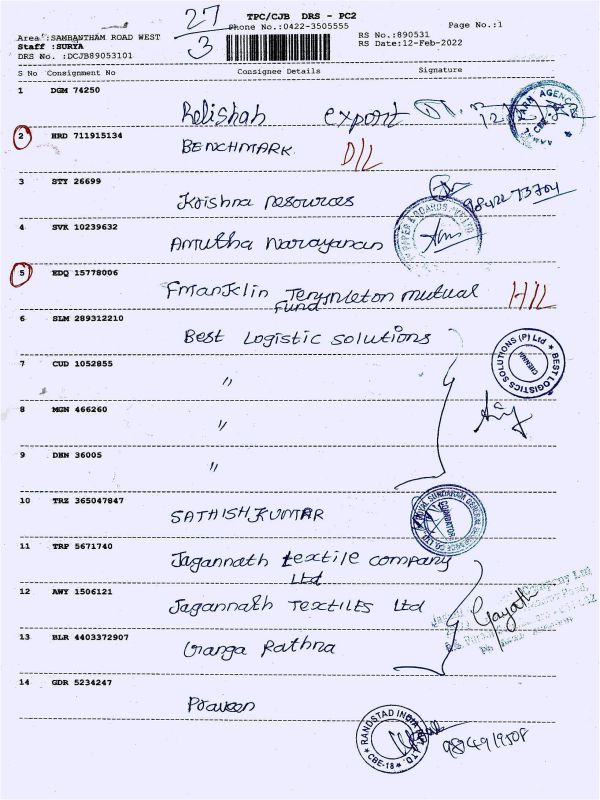 27
3
TPC/CJB DRS - PC2
Phone No.:0422-3505555
Page No.:1
Area :SAMBANTHAM ROAD WEST
Staff :SURYA
DRS No. :DCJB89053101
RS No.:890531
RS Date:12-Feb-2022
S No Consignment No Consignee Details Signature
1 DGM 74250
Relishah export
2 HRD 711915134
BENCHMARK D/L
3 STY 26699
Krishna Resources
4 SVK 10239632
Amutha Narayanan
5 EDQ 15778006
Franklin Templeton mutual H/L
Fund
6 SLM 289312210
Best Logistic solutions
BEST LOGISTICS SOLUTIONS (P) Ltd
CHENNAI
7 CUD 1052855
〃
8 MGN 466260
〃
9 DHN 36005
〃
10 TRZ 365047847
SATHISH KUMAR
11 TRP 5671740
Jagannath textile company
Ltd
12 AWY 1506121
Jagannath TEXTILES Ltd
Gayath
13 BLR 4403372907
Ganga Rathna
14 GDR 5234247
Praveen
RANDSTAD INDIA
CBE-18